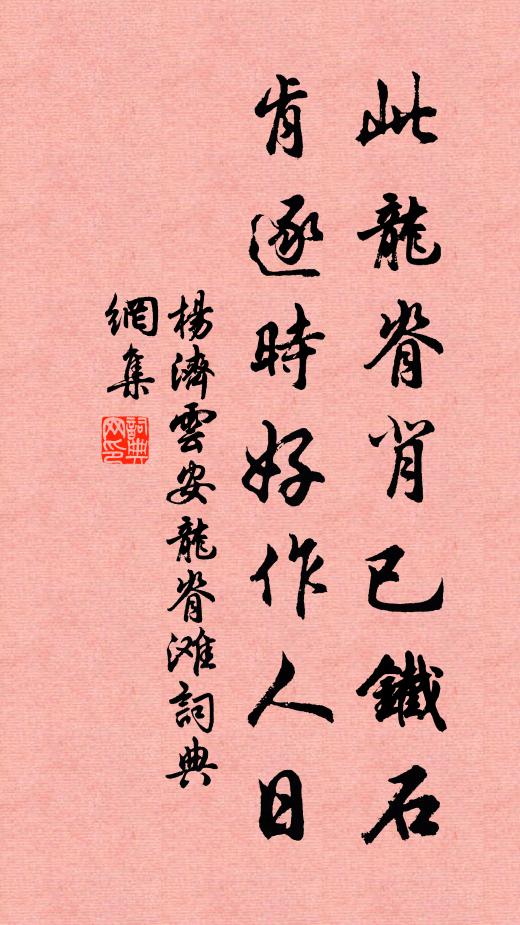 此龍脊背已鐵石
肯逐時好作人日
楊濟雲安龍脊滩詞典
網集
詞典
网印